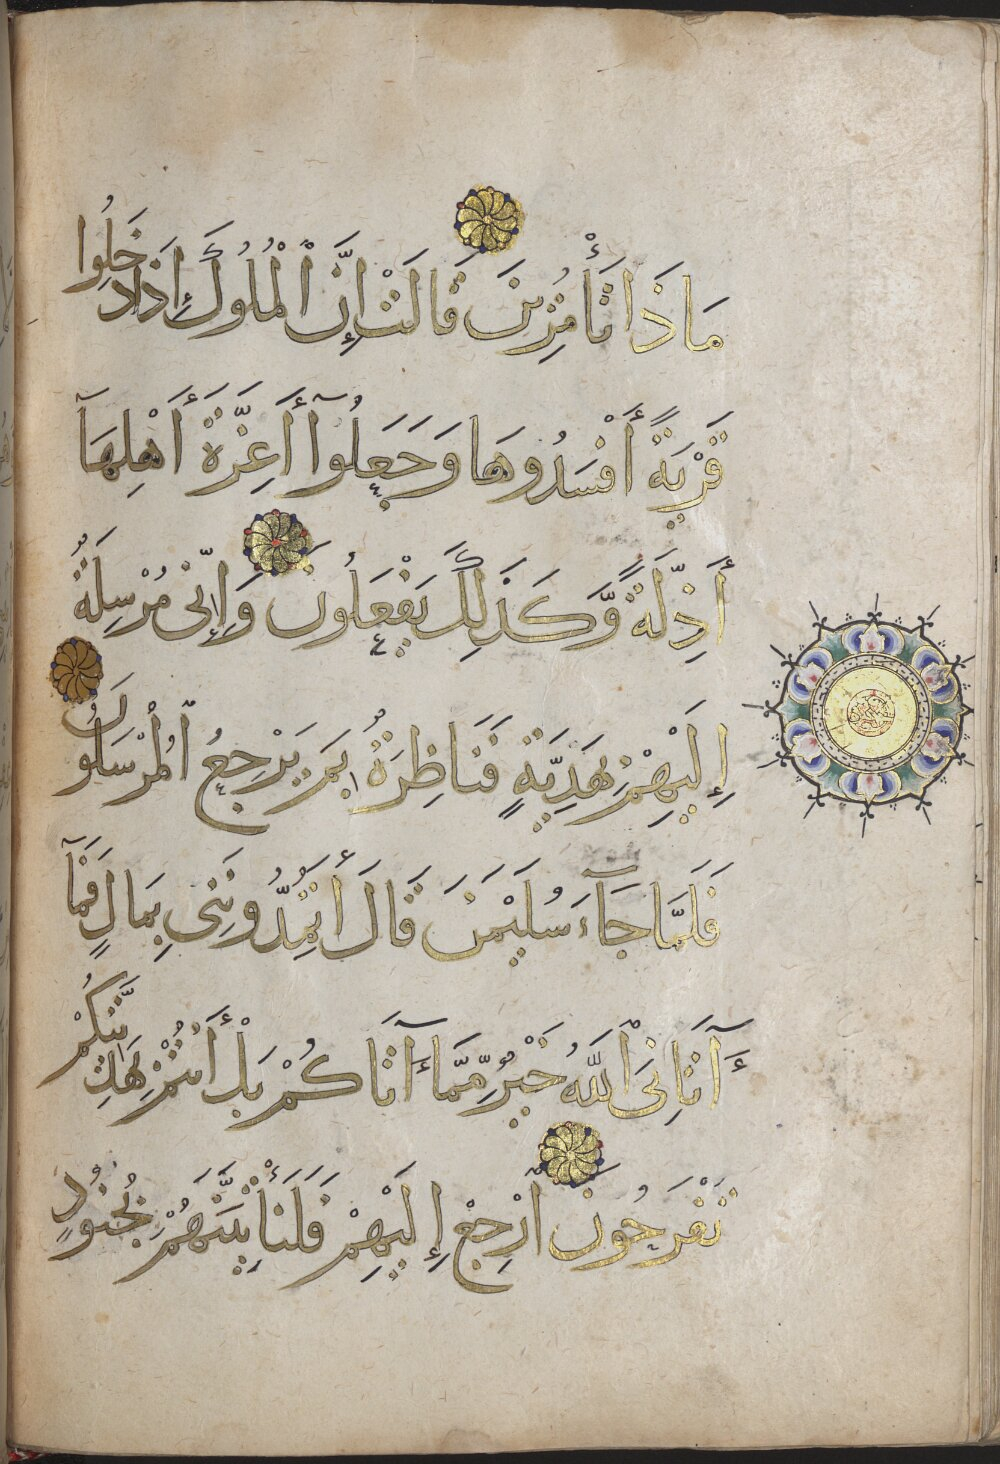 مَاذَا تَأْمُرِينَ قَالَتْ إِنَّ الْمُلُوكَ إِذَا دَخَلُوا
قَرْيَةً أَفْسَدُوهَا وَجَعَلُوٓا أَعِزَّةَ أَهْلِهَآ
أَذِلَّةً وَّكَذَلِكَ يَفْعَلُونَ وَإِنِّى مُرْسِلَةٌ
إِلَيْهِمْ بِهَدِيَّةٍ فَنَاظِرَةٌ بِمَ يَرْجِعُ الْمُرْسَلُونَ
فَلَمَّا جَآءَ سُلَيْمَنَ قَالَ أَتُمِدُّونَنِى بِمَالٍ فَمَآ
ءَآتَانِىَ اللَّهُ خَيْرٌ مِّمَّآ ءَآتَاكُمْ بَلْ أَنْتُمْ بِهَدِيَّتِكُمْ
تَفْرَحُونَ ارْجِعْ إِلَيْهِمْ فَلَنَأْتِيَنَّهُمْ بِجُنُودٍ